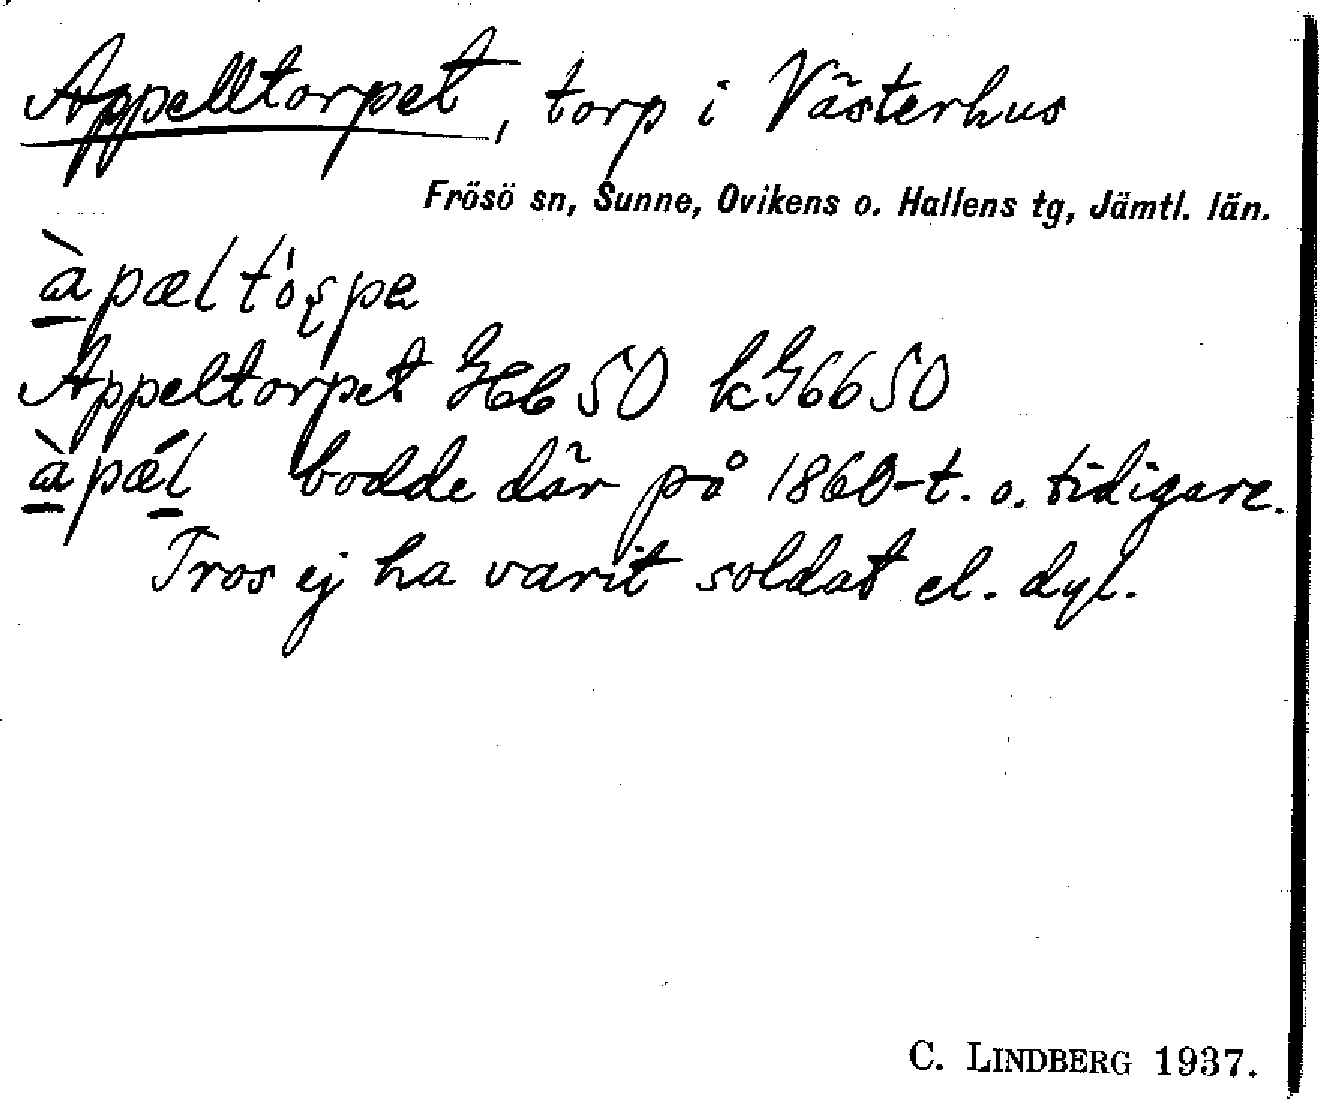 Appelltorpet, torp i Västerhus
Frösö sn, Sunne, Ovikens o. Hallens tg, Jämtl. län.
Appeltorpet GHb 50 kG6650
bodde där på 1860-t. o. tidigare.
Tros ej ha varit soldat el. dyl.
C. LINDBERG 1937.